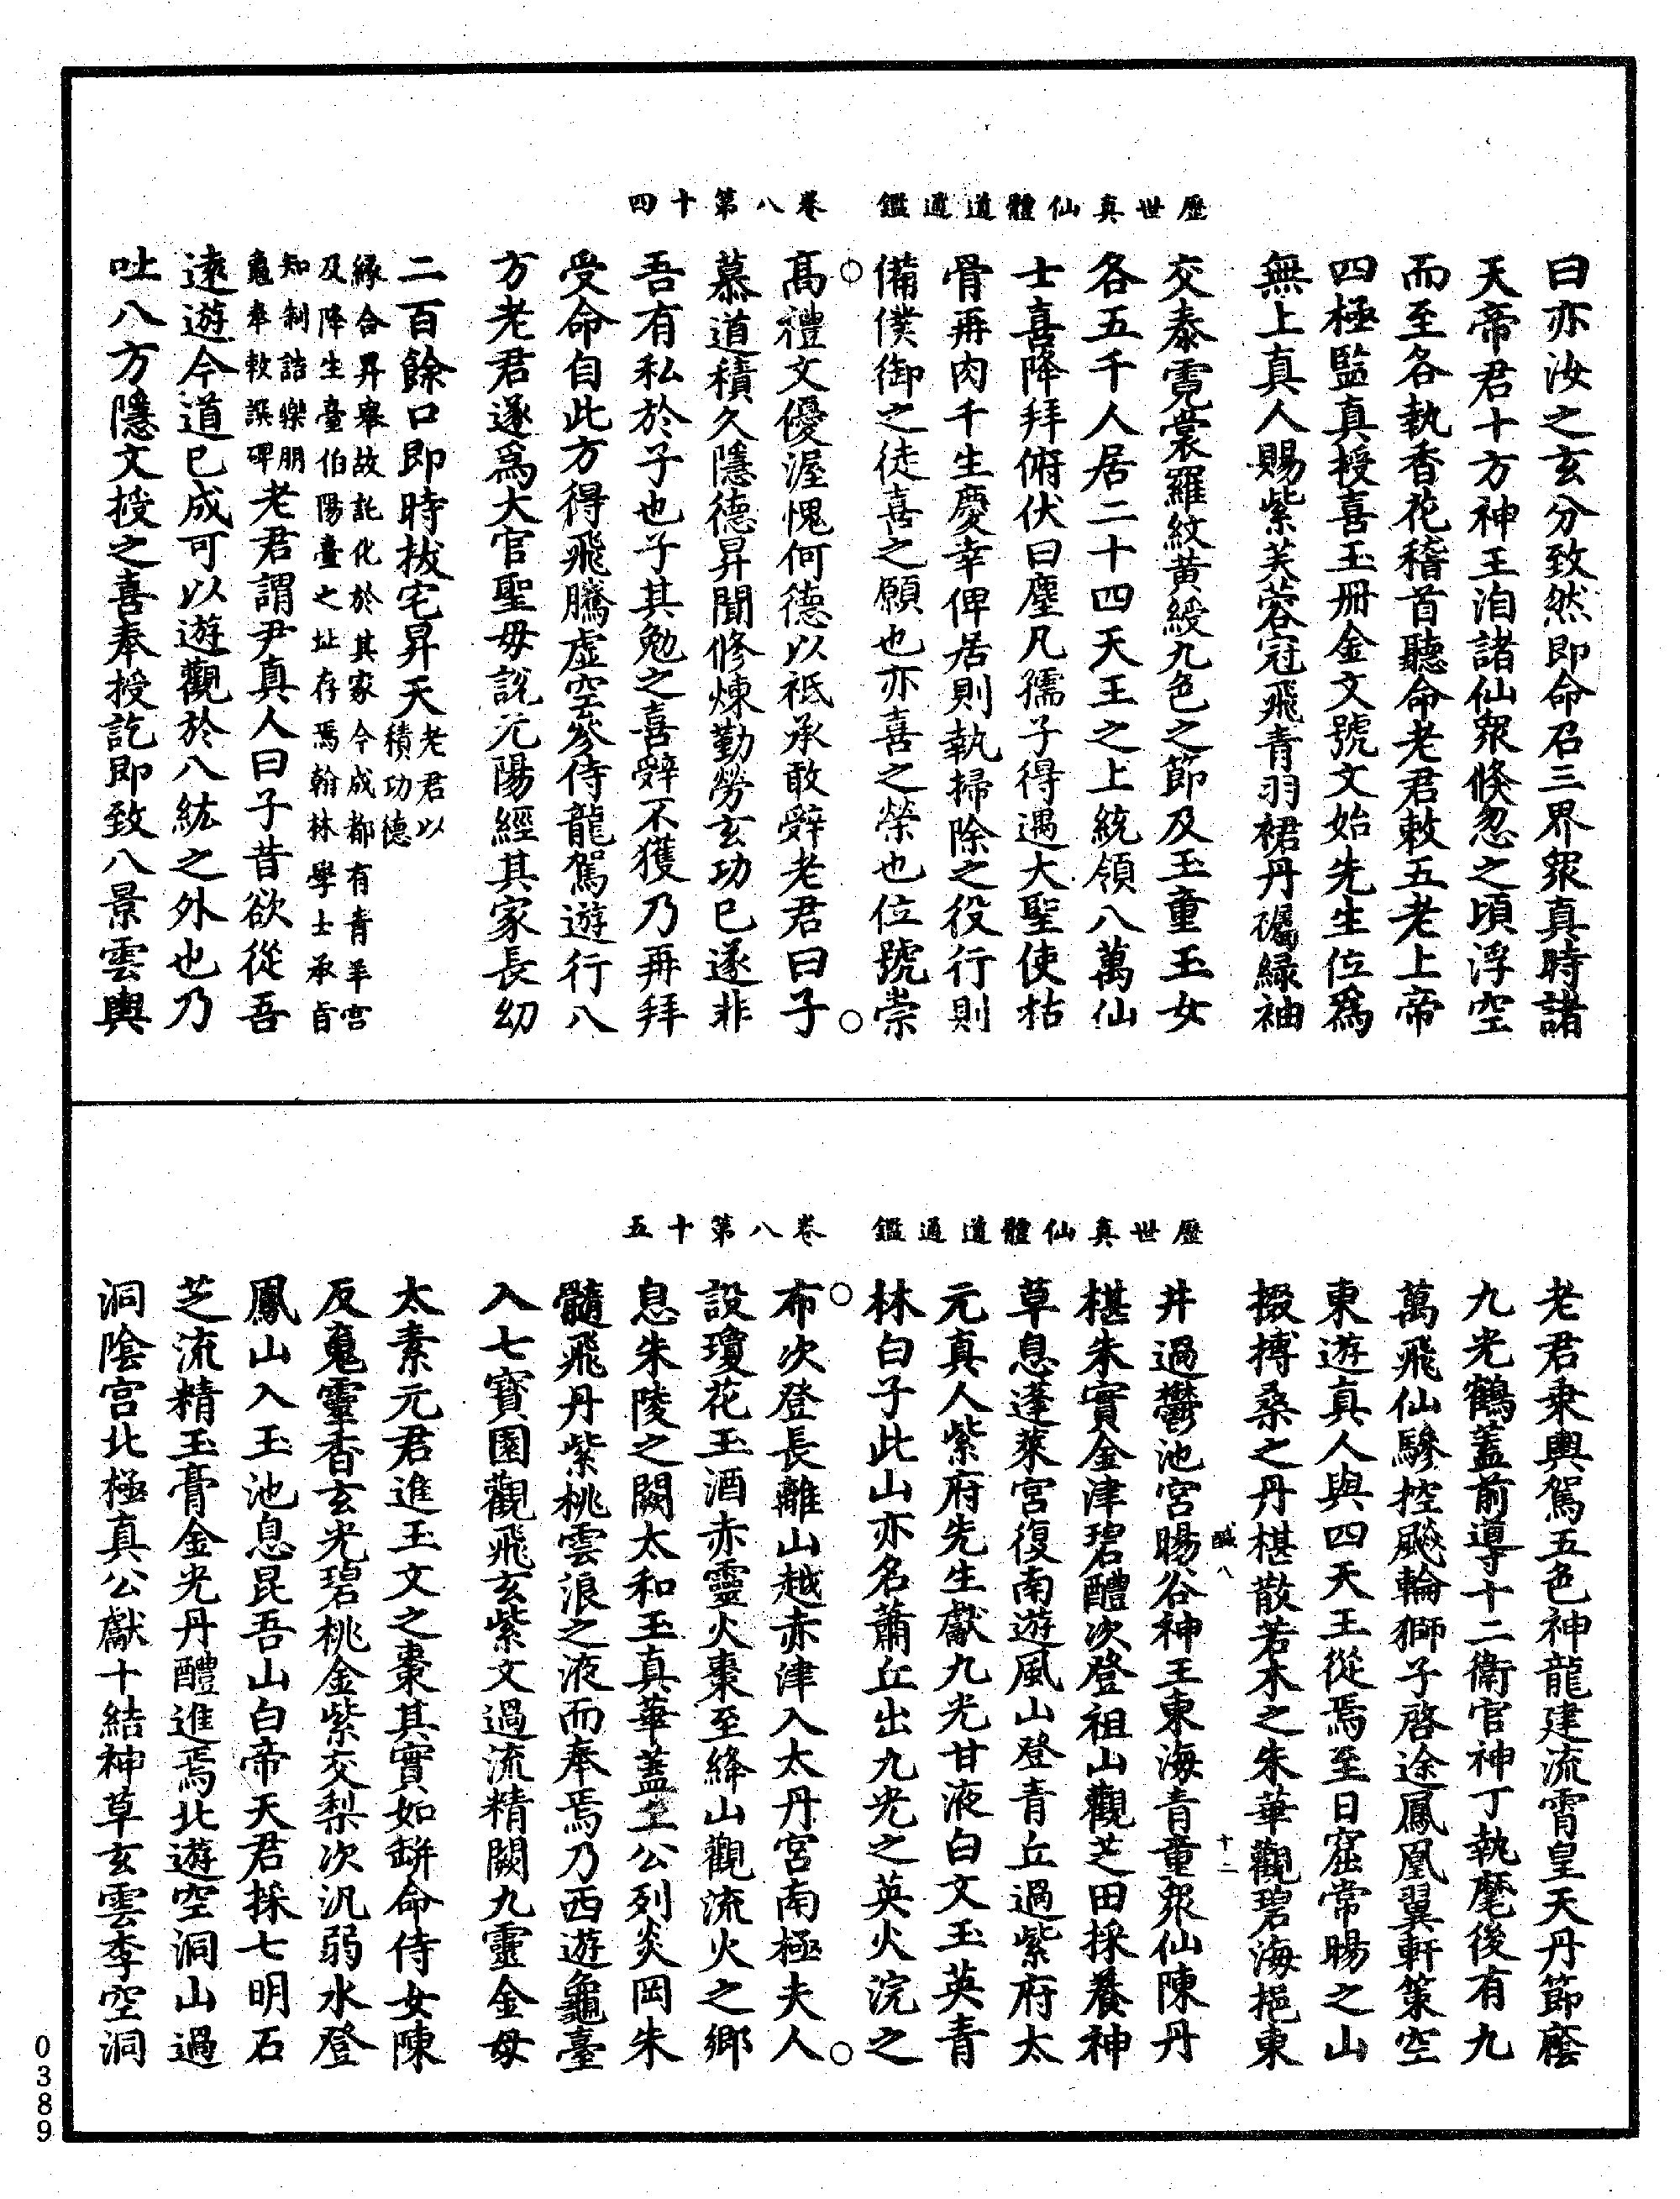 歷世真仙體道通鑑　卷八第十四
曰亦汝之玄分致然即命召三界衆真時諸
天帝君十方神王洎諸仙衆倏忽之頃浮空
而至各執香花稽首聽命老君敕五老上帝
四極監真授喜玉冊金文號文始先生位爲
無上真人賜紫芙蓉冠飛青羽裙丹襡緑袖
交泰霓裳羅紋黄綬九色之節及玉童玉女
各五千人居二十四天王之上統領八萬仙
士喜降拜俯伏曰塵凡孺子得遇大聖使枯
骨再肉千生慶幸俾居則執掃除之役行則
備僕御之徒喜之願也亦喜之榮也位號崇
高禮文優渥愧何德以祗承敢辝老君曰子
慕道積久隱德昇聞修煉勤勞玄功已遂非
吾有私於子也子其勉之喜辝不獲乃再拜
受命自此方得飛騰虛空參侍龍駕遊行八
方老君遂爲大官聖毋說元陽經其家長幼
二百餘口即時拔宅昇天老君以積功德
緣合昇舉故託化於其家今成都有青羊宮
及降生臺伯陽臺之址存焉翰林學士承旨
知制誥樂朋
龜奉敕譔碑老君謂尹真人曰子昔欲從吾
遠遊今道已成可以遊觀於八紘之外也乃
吐八方隱文授之喜奉授訖即致八景雲輿
歷世真仙體道通鑑　卷八第十五
老君乘輿駕五色神龍建流霄皇天丹節䕃
九光鶴蓋前導十二衛官神丁執麾後有九
萬飛仙驂控飈輪獅子啓途鳳凰翼軒策空
東遊真人與四天王從焉至日窟常暘之山
掇搏桑之丹椹散若木之朱華觀碧海挹東
醎八　十二
井過鬱池宮暘谷神王東海青童衆仙陳丹
椹朱實金津碧醴次登祖山觀芝田採養神
草息蓬萊宮復南遊風山登青丘過紫府太
元真人紫府先生獻九光甘液白文玉英青
林白子此山亦名蕭丘出九光之英火浣之
布次登長離山越赤津入太丹宮南極夫人
設瓊花玉酒赤靈火棗至絳山觀流火之鄉
息朱陵之闕太和玉真華蓋上公列炎岡朱
髓飛丹紫桃雲浪之液而奉焉乃西遊龜臺
入七寶園觀飛玄紫文過流精闕九靈金母
太素元君進玉文之棗其實如缾命侍女陳
反䰟靈香玄光碧桃金紫交梨次汎弱水登
鳳山入玉池息昆吾山白帝天君採七明石
芝流精玉膏金光丹醴進焉北遊空洞山過
洞陰宮北極真公獻十結神草玄雲李空洞
0389